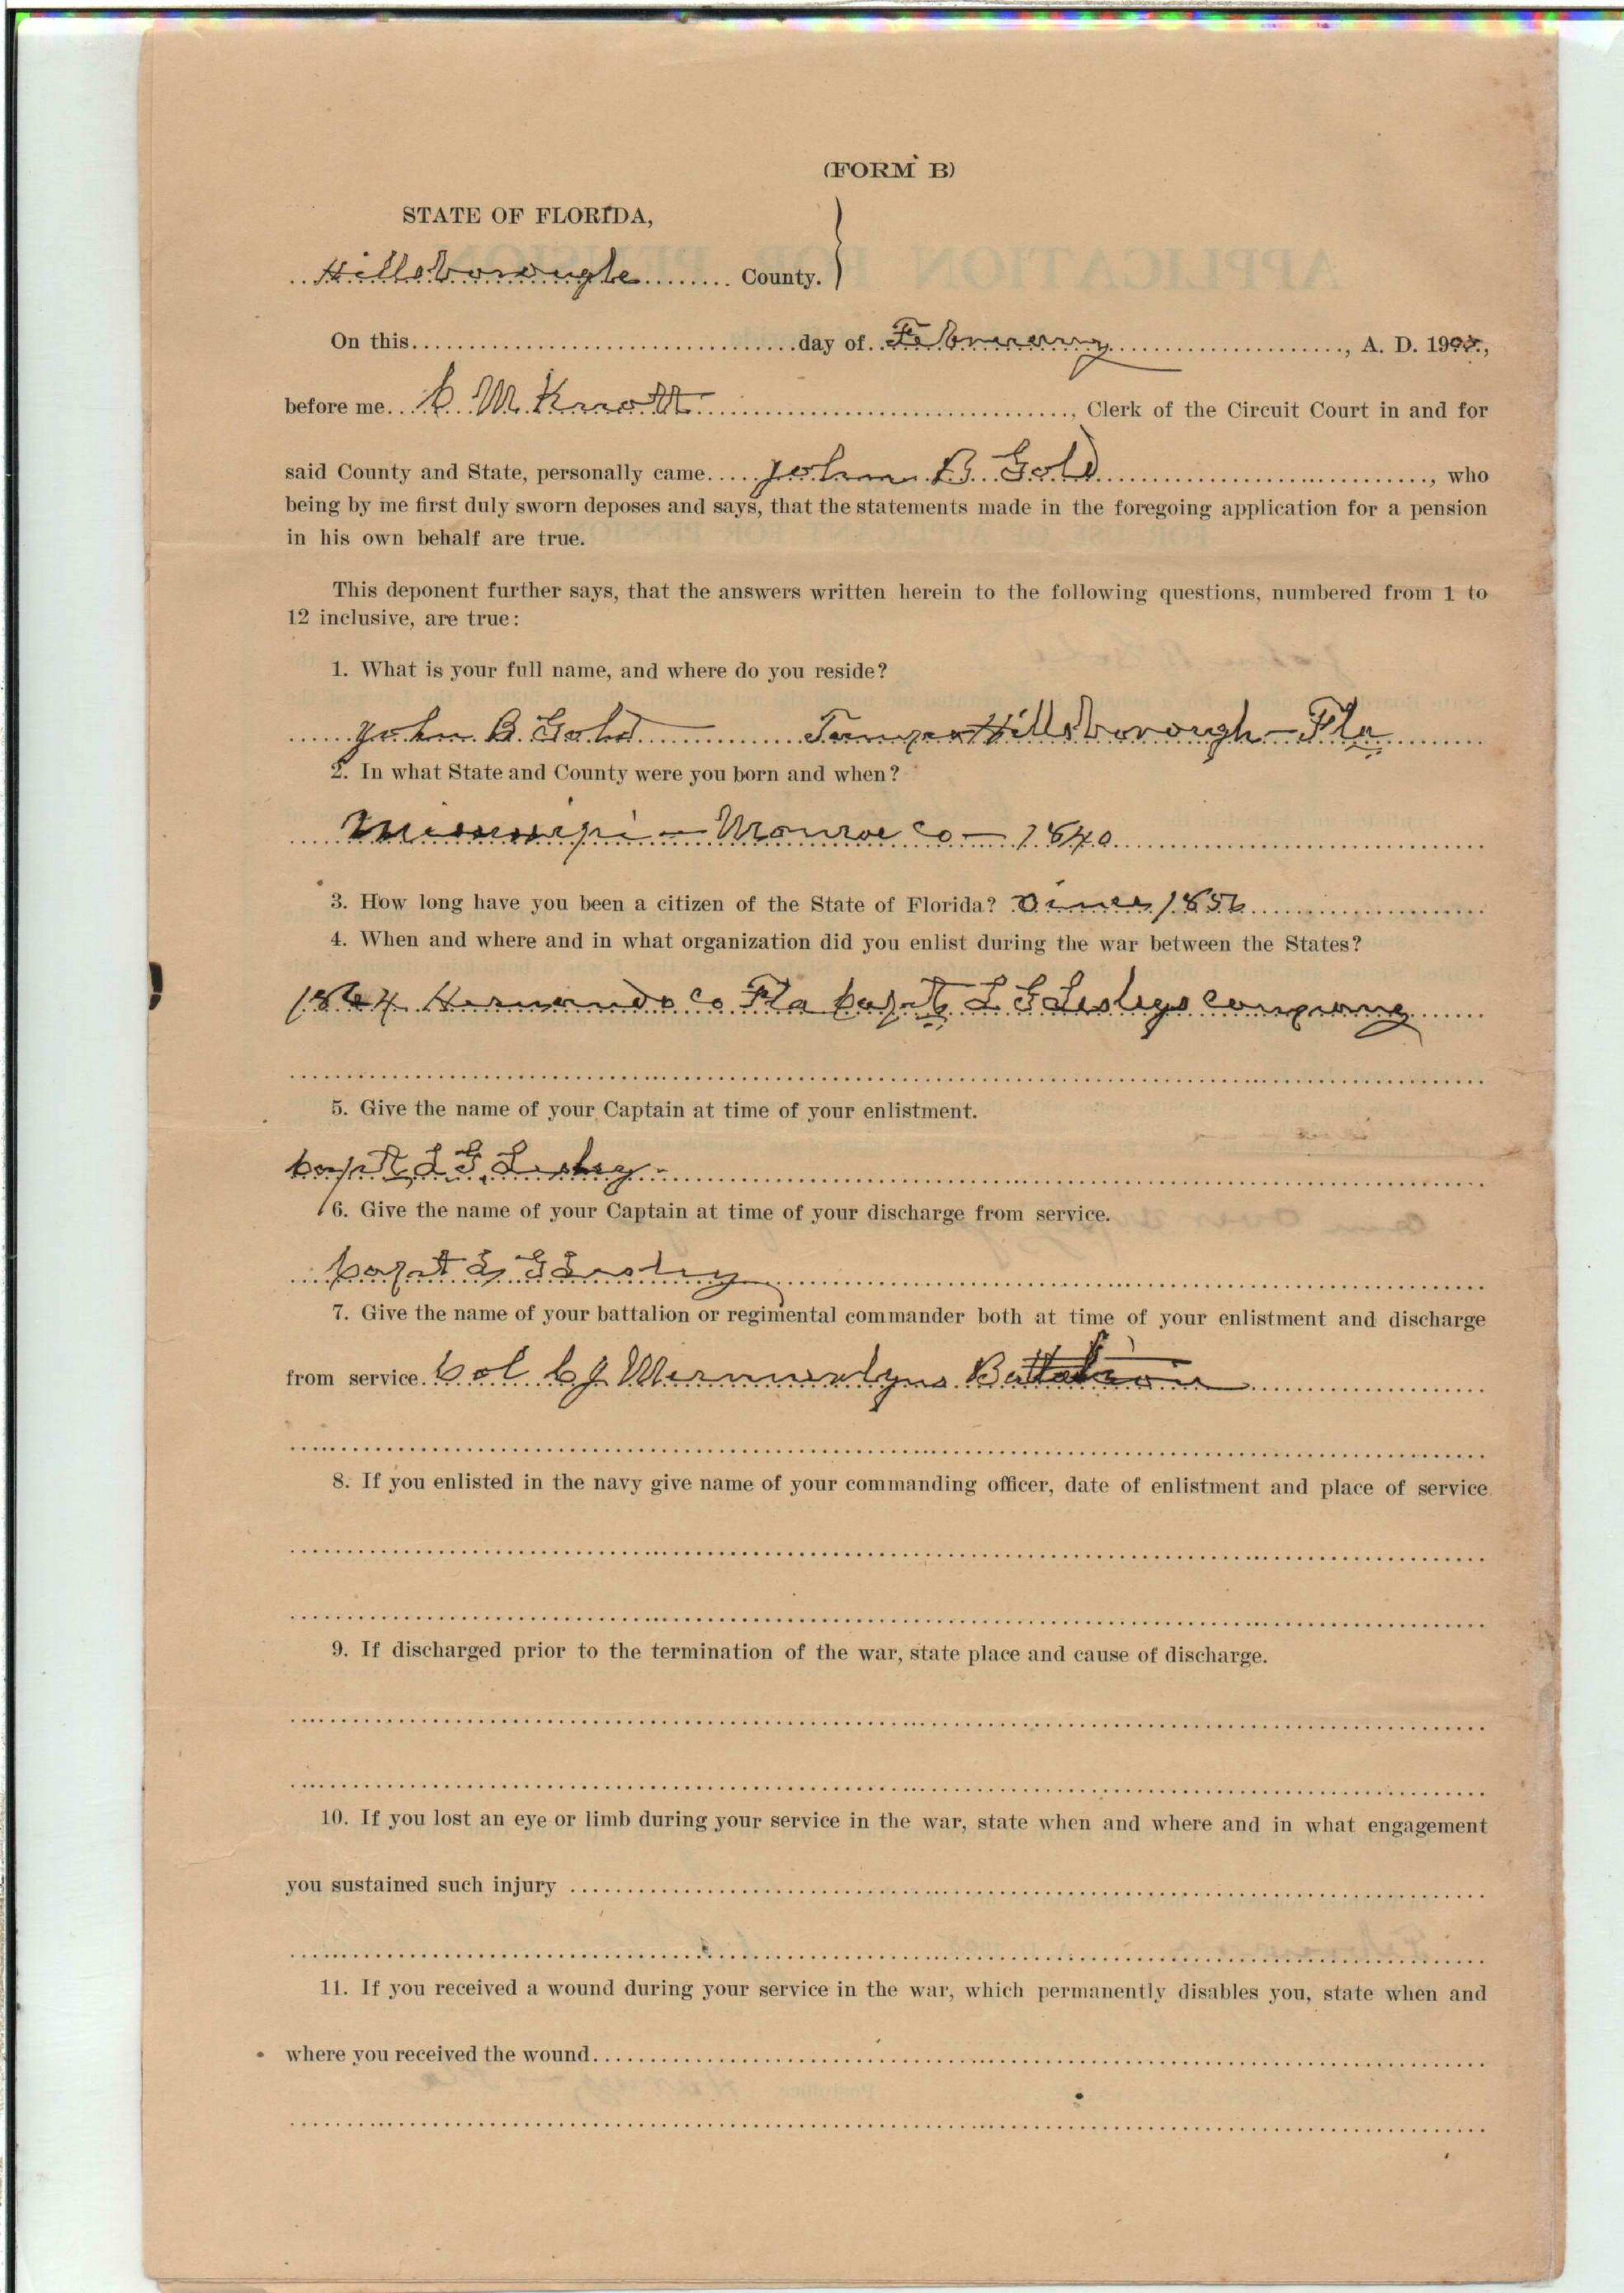 (FORM B)
STATE OF FLORIDA,
Hillsborough County.
On this day of February, A. D. 190
before me C. M. Knott, Clerk of the Circuit Court in and for
said County and State, personally came John B. Gold, who
being by me first duly sworn deposes and says, that the statements made in the foregoing application for a pension
in his own behalf are true.
This deponent further says, that the answers written herein to the following questions, numbered from 1 to
12 inclusive, are true:
1. What is your full name, and where do you reside?
John B. Gold Tampa Hillsborough - Fla
2. In what State and County were you born and when?
- Monroe Co - 1840
3. How long have you been a citizen of the State of Florida? Since 1856
4. When and where and in what organization did you enlist during the war between the States?
1864 Hernando Co Fla Capt L G Lesleys company
5. Give the name of your Captain at time of your enlistment.
Capt L G. Lesley
6. Give the name of your Captain at time of your discharge from service.
Capt L G Lesley
7. Give the name of your battalion or regimental commander both at time of your enlistment and discharge
from service. Col C J Battalion
8. If you enlisted in the navy give name of your commanding officer, date of enlistment and place of service
9. If discharged prior to the termination of the war, state place and cause of discharge.
10. If you lost an eye or limb during your service in the war, state when and where and in what engagement
you sustained such injury
11. If you received a wound during your service in the war, which permanently disables you, state when and
where you received the wound